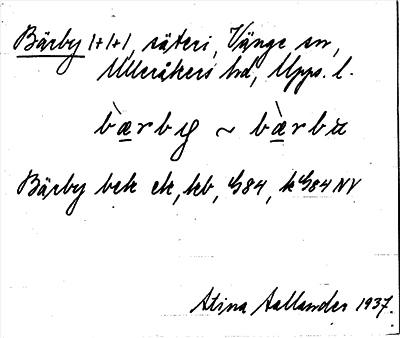 Bärby 1+1+1, säteri, Vänge sn,
Ulleråkers hd, Upps. l.
bærby ~ bærbu
Bärby bek ek, kb, G84, kG84 NV
Stina Aallander 1937.